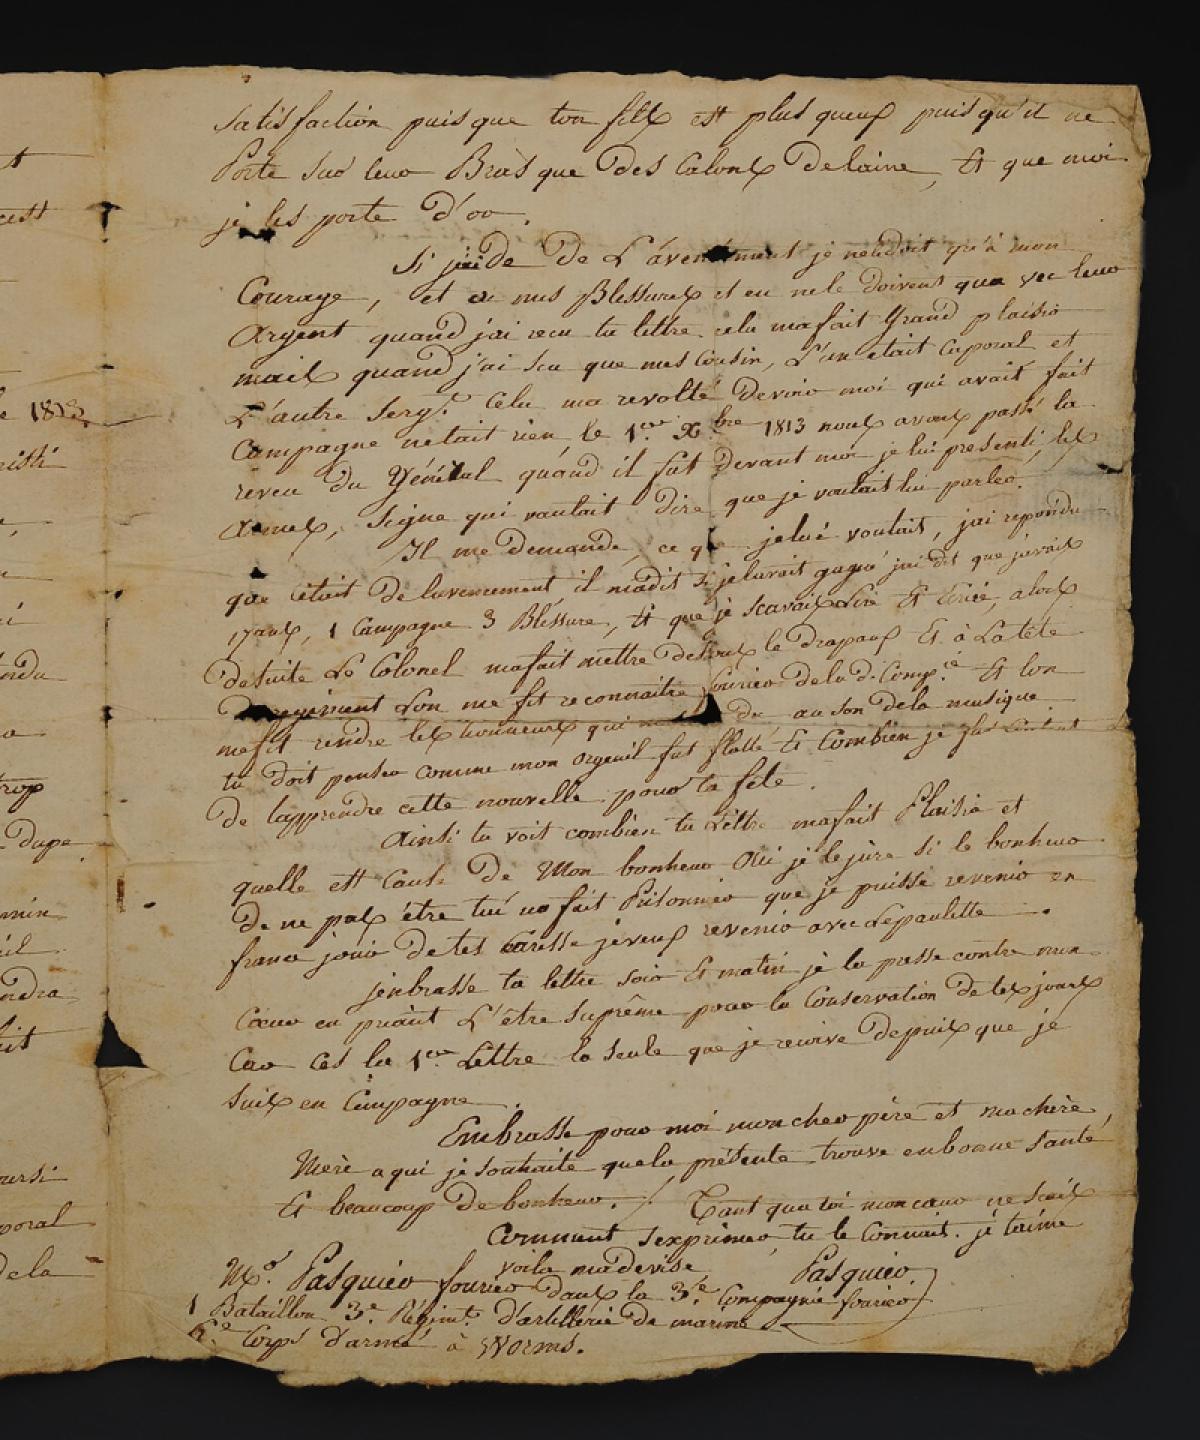 st
cest
le 1813
risti
ndu
trop
dupe
min
ndra
uit
oursi
poral
dela
satisfaction puis que ton fils est plus queux puisqu'il ne
Porte sur leur Bras que des Galons Delaine, Et que moi
je les porte D'or.
Si j'ai de De L'avencement je neledoit qu'à mon
Courage, et a mes Blessures et eu nele doivent qua vec leur
argent quand j'ai recu ta lettre cela mafait Grand plaisir
mais quand j'ai scu que mes Cousin, L'un etait Caporal et
L'autre Sergt. Cela ma revolté Devenir moi qui avait fait
Campagne netait rien le 1er Xbre 1813 nous avons passé la
reveu du Général quand il fut Devant moi je lui presenti les
armes, signe qui voulait Dire que je voulait lui parler.
Il me Demande, ce que jelui voulait, jai repondu
que c'était De lavencement, il madit si jelavait gagné jai dit que j'avais
17 ans, 1 Campagne 3 Blessure, Et que je scavais Lire Et Ecrire, alors
desuite Le Colonel mafait mettre Dessous le drapaux Et à La tete
Du regiment L'on me fit reconnaitre fourier Dela d. Compie. Et l'on
mefit rendre les honneurs qui du au son dela musique
tu Doit penser comme mon orgeuil fut flatté Et Combien je
De lapprendre cette nouvelle pour ta fete.
Ainsi tu voit combien ta Lettre mafait Plaisir et
quelle est Cause De Mon bonheur Oui je lejure si le bonheur
De ne pas être tué ne fait Prisonnier que je puisse revenir en
france jouir De tes Caresse jeveux revenir avec Lepaulette.
jenbrasse ta lettre soir Et matin je la presse contre mon
Cœur en priant L'être suprême pour la Conservation De tes jours
Car Ces la 1ere Lettre la seule que je recive Depuis que je
suis en Campagne.
Embrasse pour moi mon cher père et ma chère
Mère a qui je souhaite quela présente trouve enbonne santé
Et beaucoup De bonheur. / Tant qua toi mon cœur ne scais
Comment s'exprimer, tu le Connait. je t'aime
voila madevise Pasquier.
Mr. Pasquier fourier Dans la 3me. Compagnie fourier
1 Bataillon 3e. Régimt. D'artillerie De marine
6e Corps D'armé à Worms.